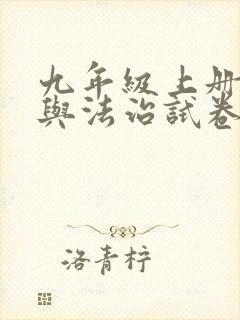 九年級上册
與法治試卷
洛青柠